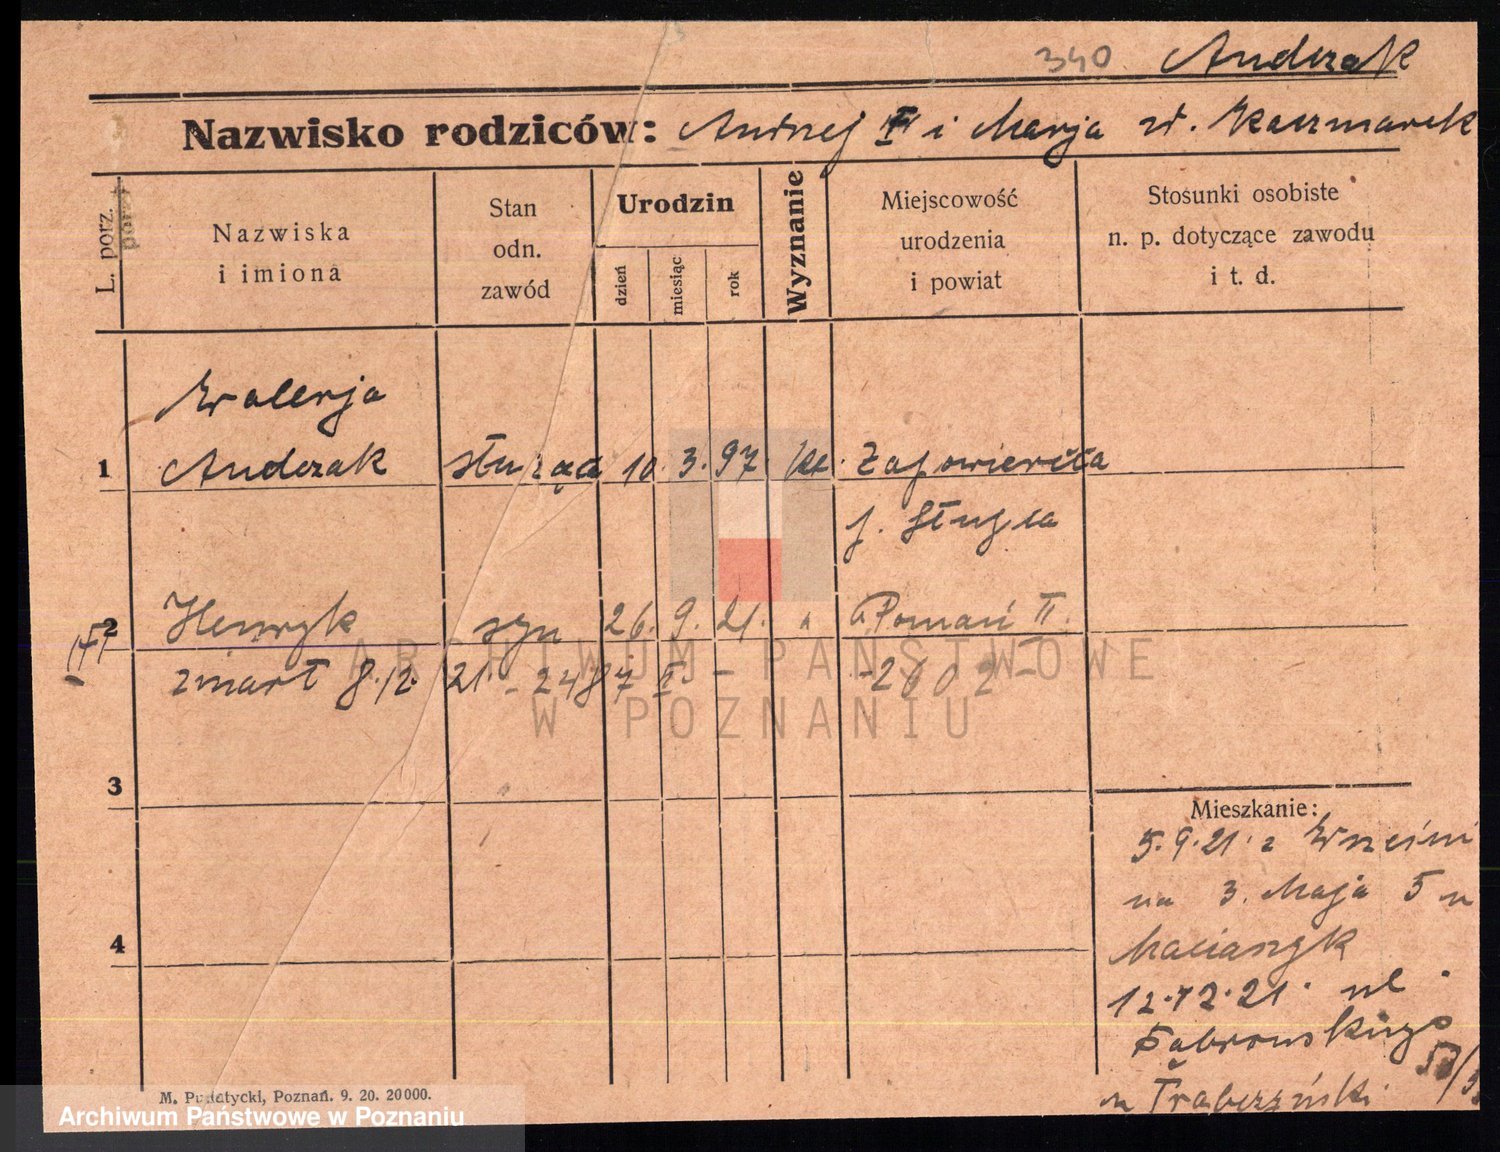 340 Andrzak
Nazwisko rodziców: Andrzej i Marja ur. Kaczmarek
L. porz.
Nazwiska
i imiona
Stan
odn.
zawód
Urodzin
dzień
miesiąc
rok
Wyznanie
Miejscowość
urodzenia
i powiat
Stosunki osobiste
n. p. dotyczące zawodu
i t. d.
Walerja
1 Andrzak służąca 10. 3. 97. kt.
2 Henryk syn 26. 9. 21. " Poznań II.
zmarł 8.12. 21 - 2487 II - -2602-
3
4
Mieszkanie:
5.9.21. z Wrześni
na 3. Maja 5 u
12.12.21. ul.
Dąbrowskiego
u
ARCHIWUM PAŃSTWOWE
W POZNANIU
M. Pudatycki, Poznań. 9. 20. 20000.
Archiwum Państwowe w Poznaniu